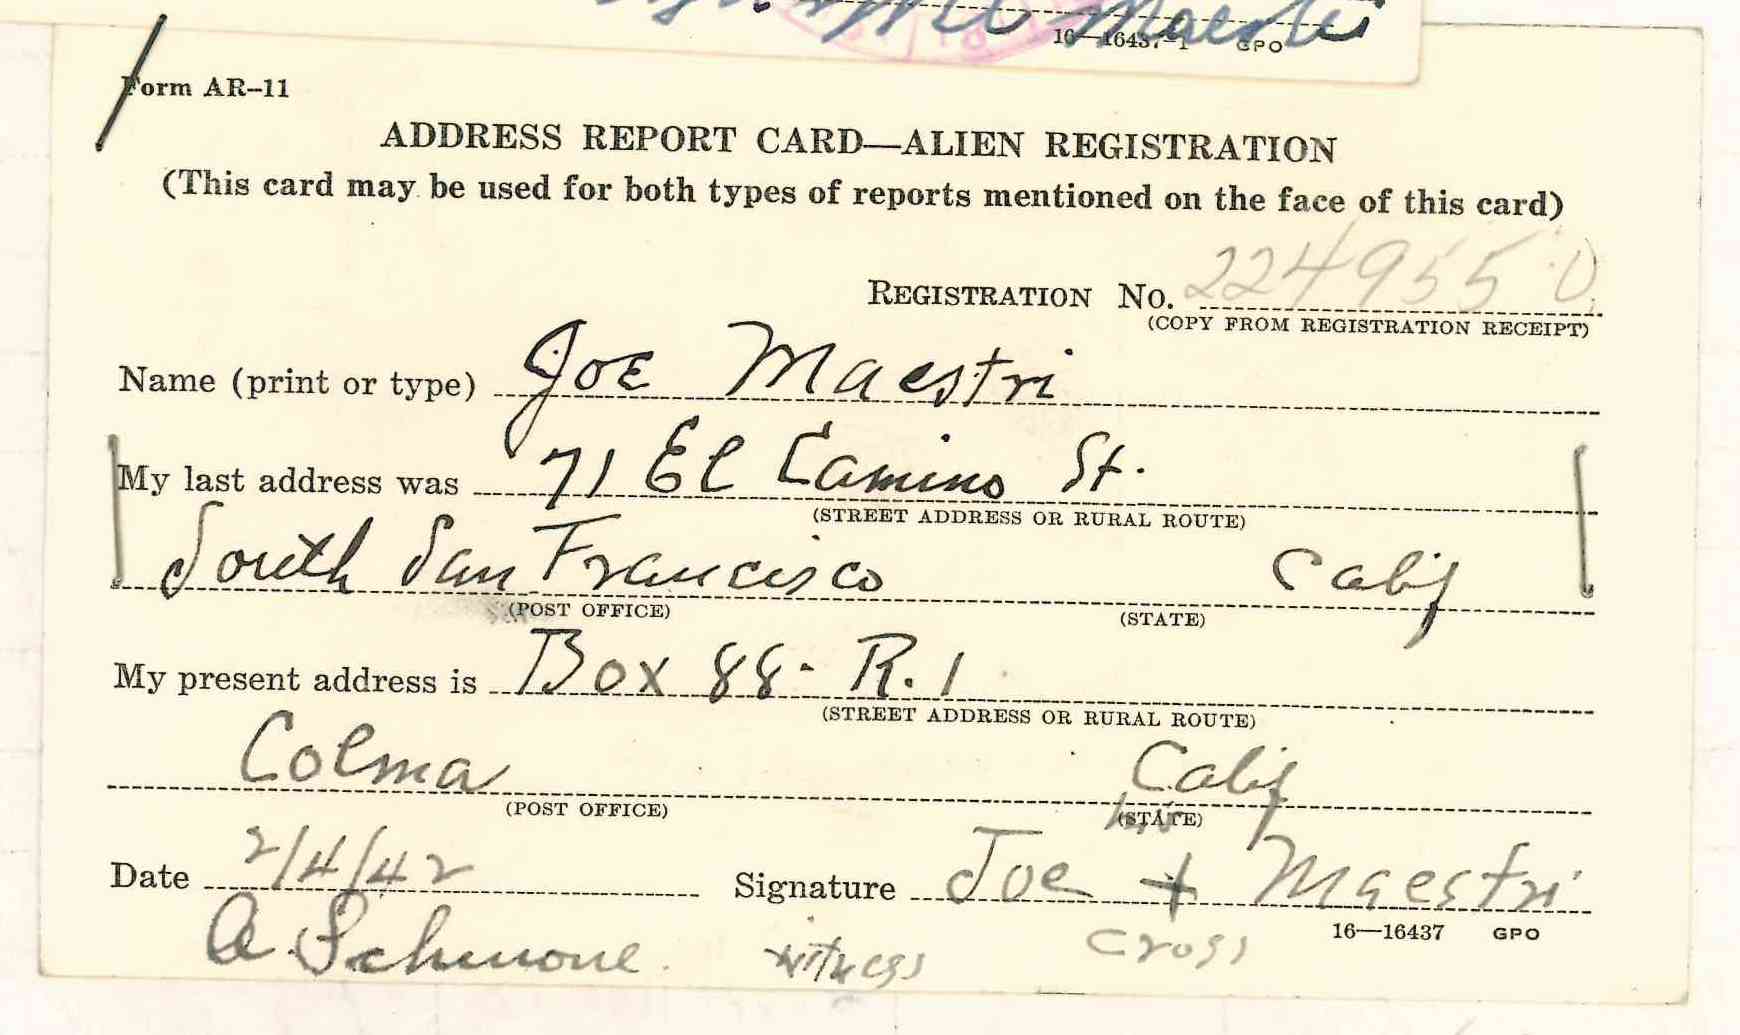 Maestri
16—16437-1 GPO
Form AR–11
ADDRESS REPORT CARD—ALIEN REGISTRATION
(This card may be used for both types of reports mentioned on the face of this card)
REGISTRATION No. 2249550
(COPY FROM REGISTRATION RECEIPT)
Name (print or type) Joe Maestri
My last address was 71 El Camino St.
(STREET ADDRESS OR RURAL ROUTE)
South San Francisco Calif
(POST OFFICE) (STATE)
My present address is Box 88- R. 1
(STREET ADDRESS OR RURAL ROUTE)
Colma Calif
(POST OFFICE) (STATE)
his
Date 2/4/42 Signature Joe + Maestri
16—16437 GPO
A. witness cross